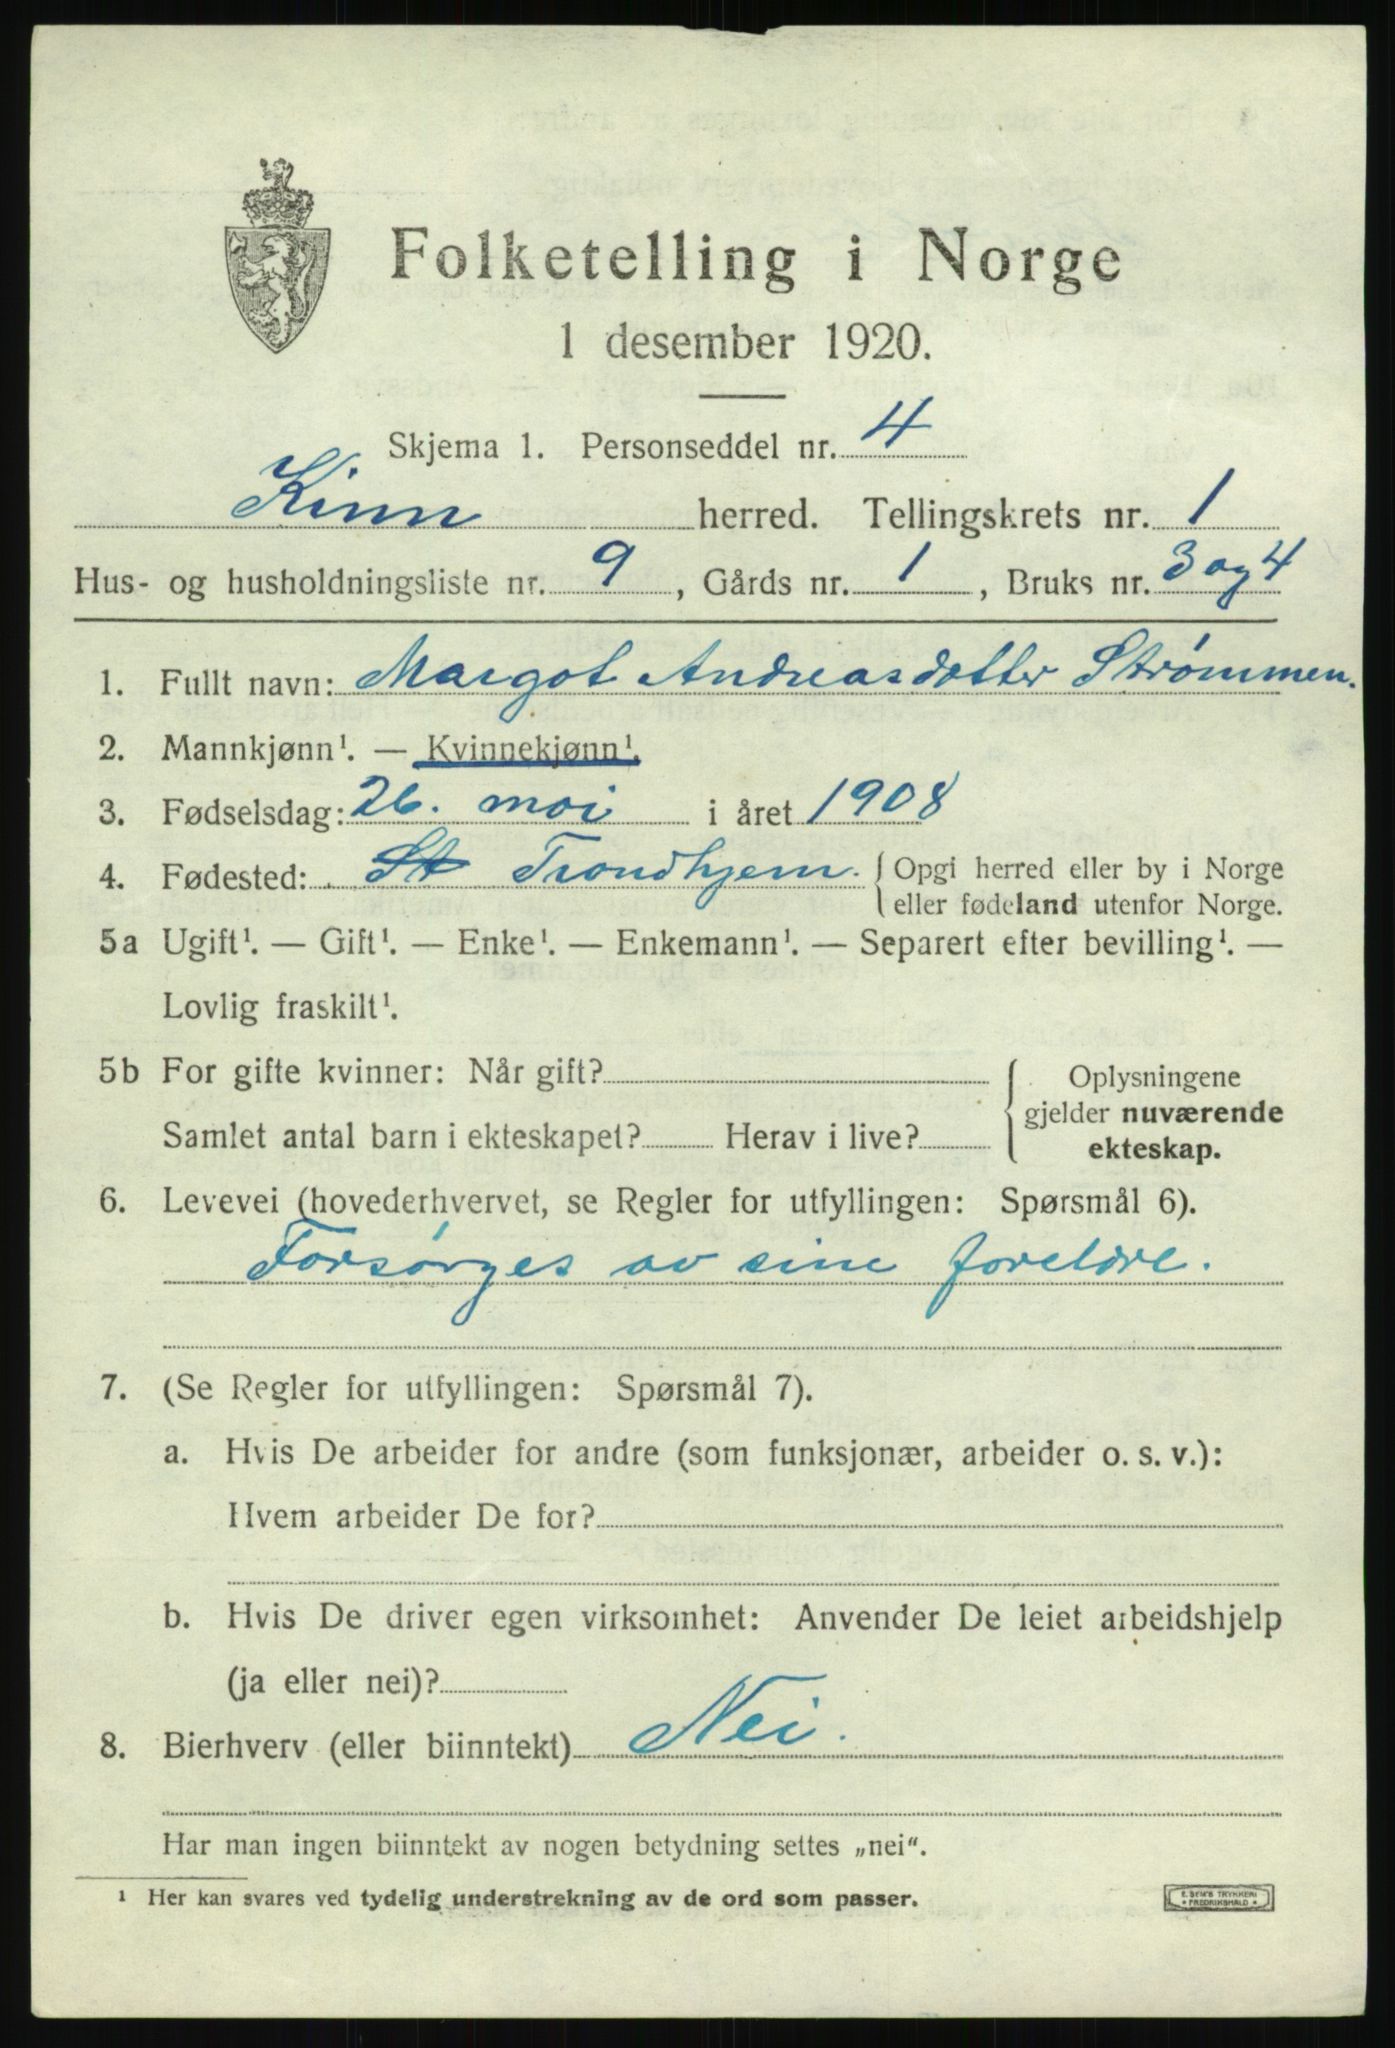 Folketelling i Norge
1 desember 1920.
Skjema 1. Personseddel nr. 4
Kinn herred. Tellingskrets nr. 1
Hus- og husholdningsliste nr. 9, Gårds nr. 1, Bruks nr. 3 og 4
1. Fullt navn: Margot Andreasdotter Strømmen.
2. Mannkjønn¹. — Kvinnekjønn¹.
3. Fødselsdag: 26. moi i året 1908
4. Fødested: St Trondhjem. Opgi herred eller by i Norge
eller fødeland utenfor Norge.
5a Ugift¹. — Gift¹. — Enke¹. — Enkemann¹. — Separert efter bevilling¹. —
Lovlig fraskilt¹.
5b For gifte kvinner: Når gift? Oplysningene
gjelder nuværende
Samlet antal barn i ekteskapet? Herav i live? ekteskap.
6. Levevei (hovederhvervet, se Regler for utfyllingen: Spørsmål 6).
Forsørges av sine foreldre.
7. (Se Regler for utfyllingen: Spørsmål 7).
a. Hvis De arbeider for andre (som funksjonær, arbeider o. s. v.):
Hvem arbeider De for?
b. Hvis De driver egen virksomhet: Anvender De leiet arbeidshjelp
(ja eller nei)?
8. Bierhverv (eller biinntekt) Nei.
Har man ingen biinntekt av nogen betydning settes „nei“.
¹ Her kan svares ved tydelig understrekning av de ord som passer.
E. SEM'S TRYKKERI
FREDRIKSHALD